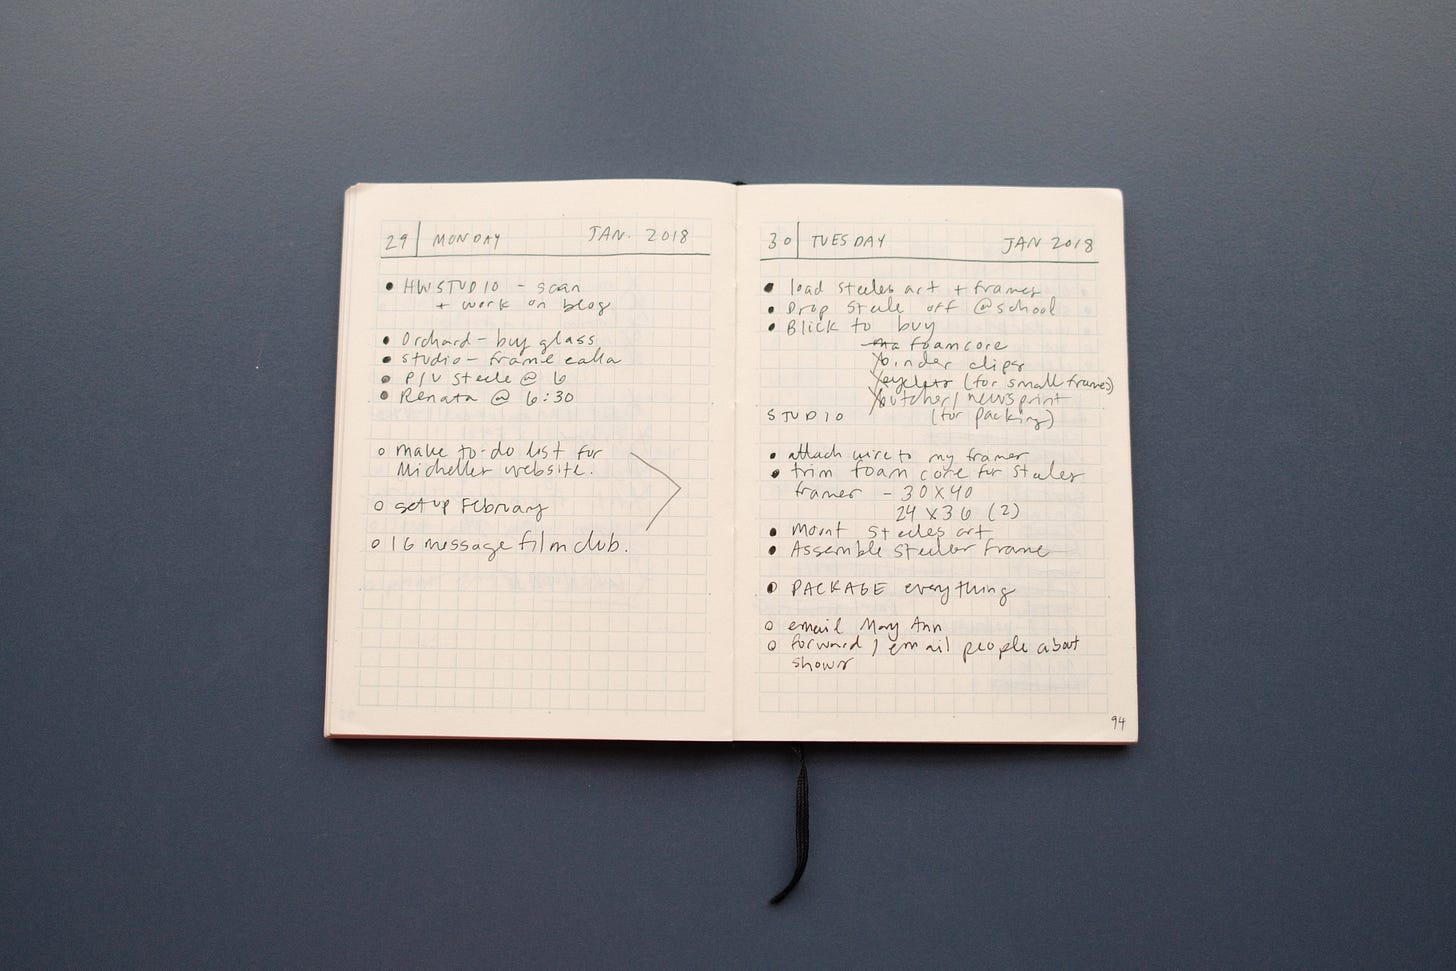 29 MONDAY JAN. 2018
HWSTUDIO - scan
+ work on blog
Orchard - buy glass
studio - frame calla
P/U Steele @ 6
Renata @ 6:30
make to-do list for
Michelles website.
setup February
IG message film club.
30 TUESDAY JAN 2018
load steeles art + frames
Drop Steele off @ school
Blick to buy
foamcore
binder clips
eyelets (for small frames)
butcher/newsprint
STUDIO (for packing)
attach wire to my frames
trim foam core for Steeles
frames - 30X40
24 X 36 (2)
Mount Steeles art
Assemble Steeles frame
PACKAGE everything
email Mary Ann
forward / email people about
shows
94